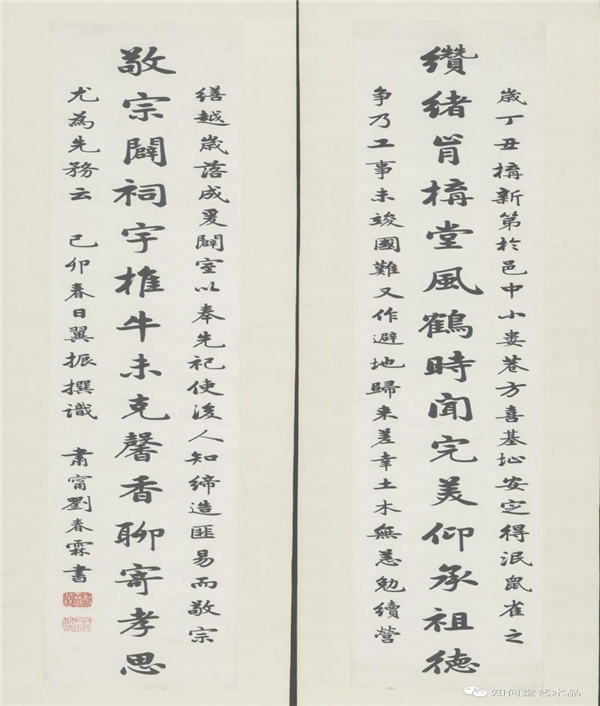 歲丁丑構新第於邑中小婁巷方喜基址安定得泯鼠雀之
纘緒肯構堂風鶴時聞完美仰承祖德
争乃工事未竣國難又作避地歸来差幸土木無恙勉續營
繕越歲落成爰闢室以奉先祀使後人知締造匪易而敬宗
敬宗闢祠宇椎牛未克馨香聊寄孝思
尤為先務云 己卯春日翼振撰識 肅甯劉春霖書
知何堂艺术品